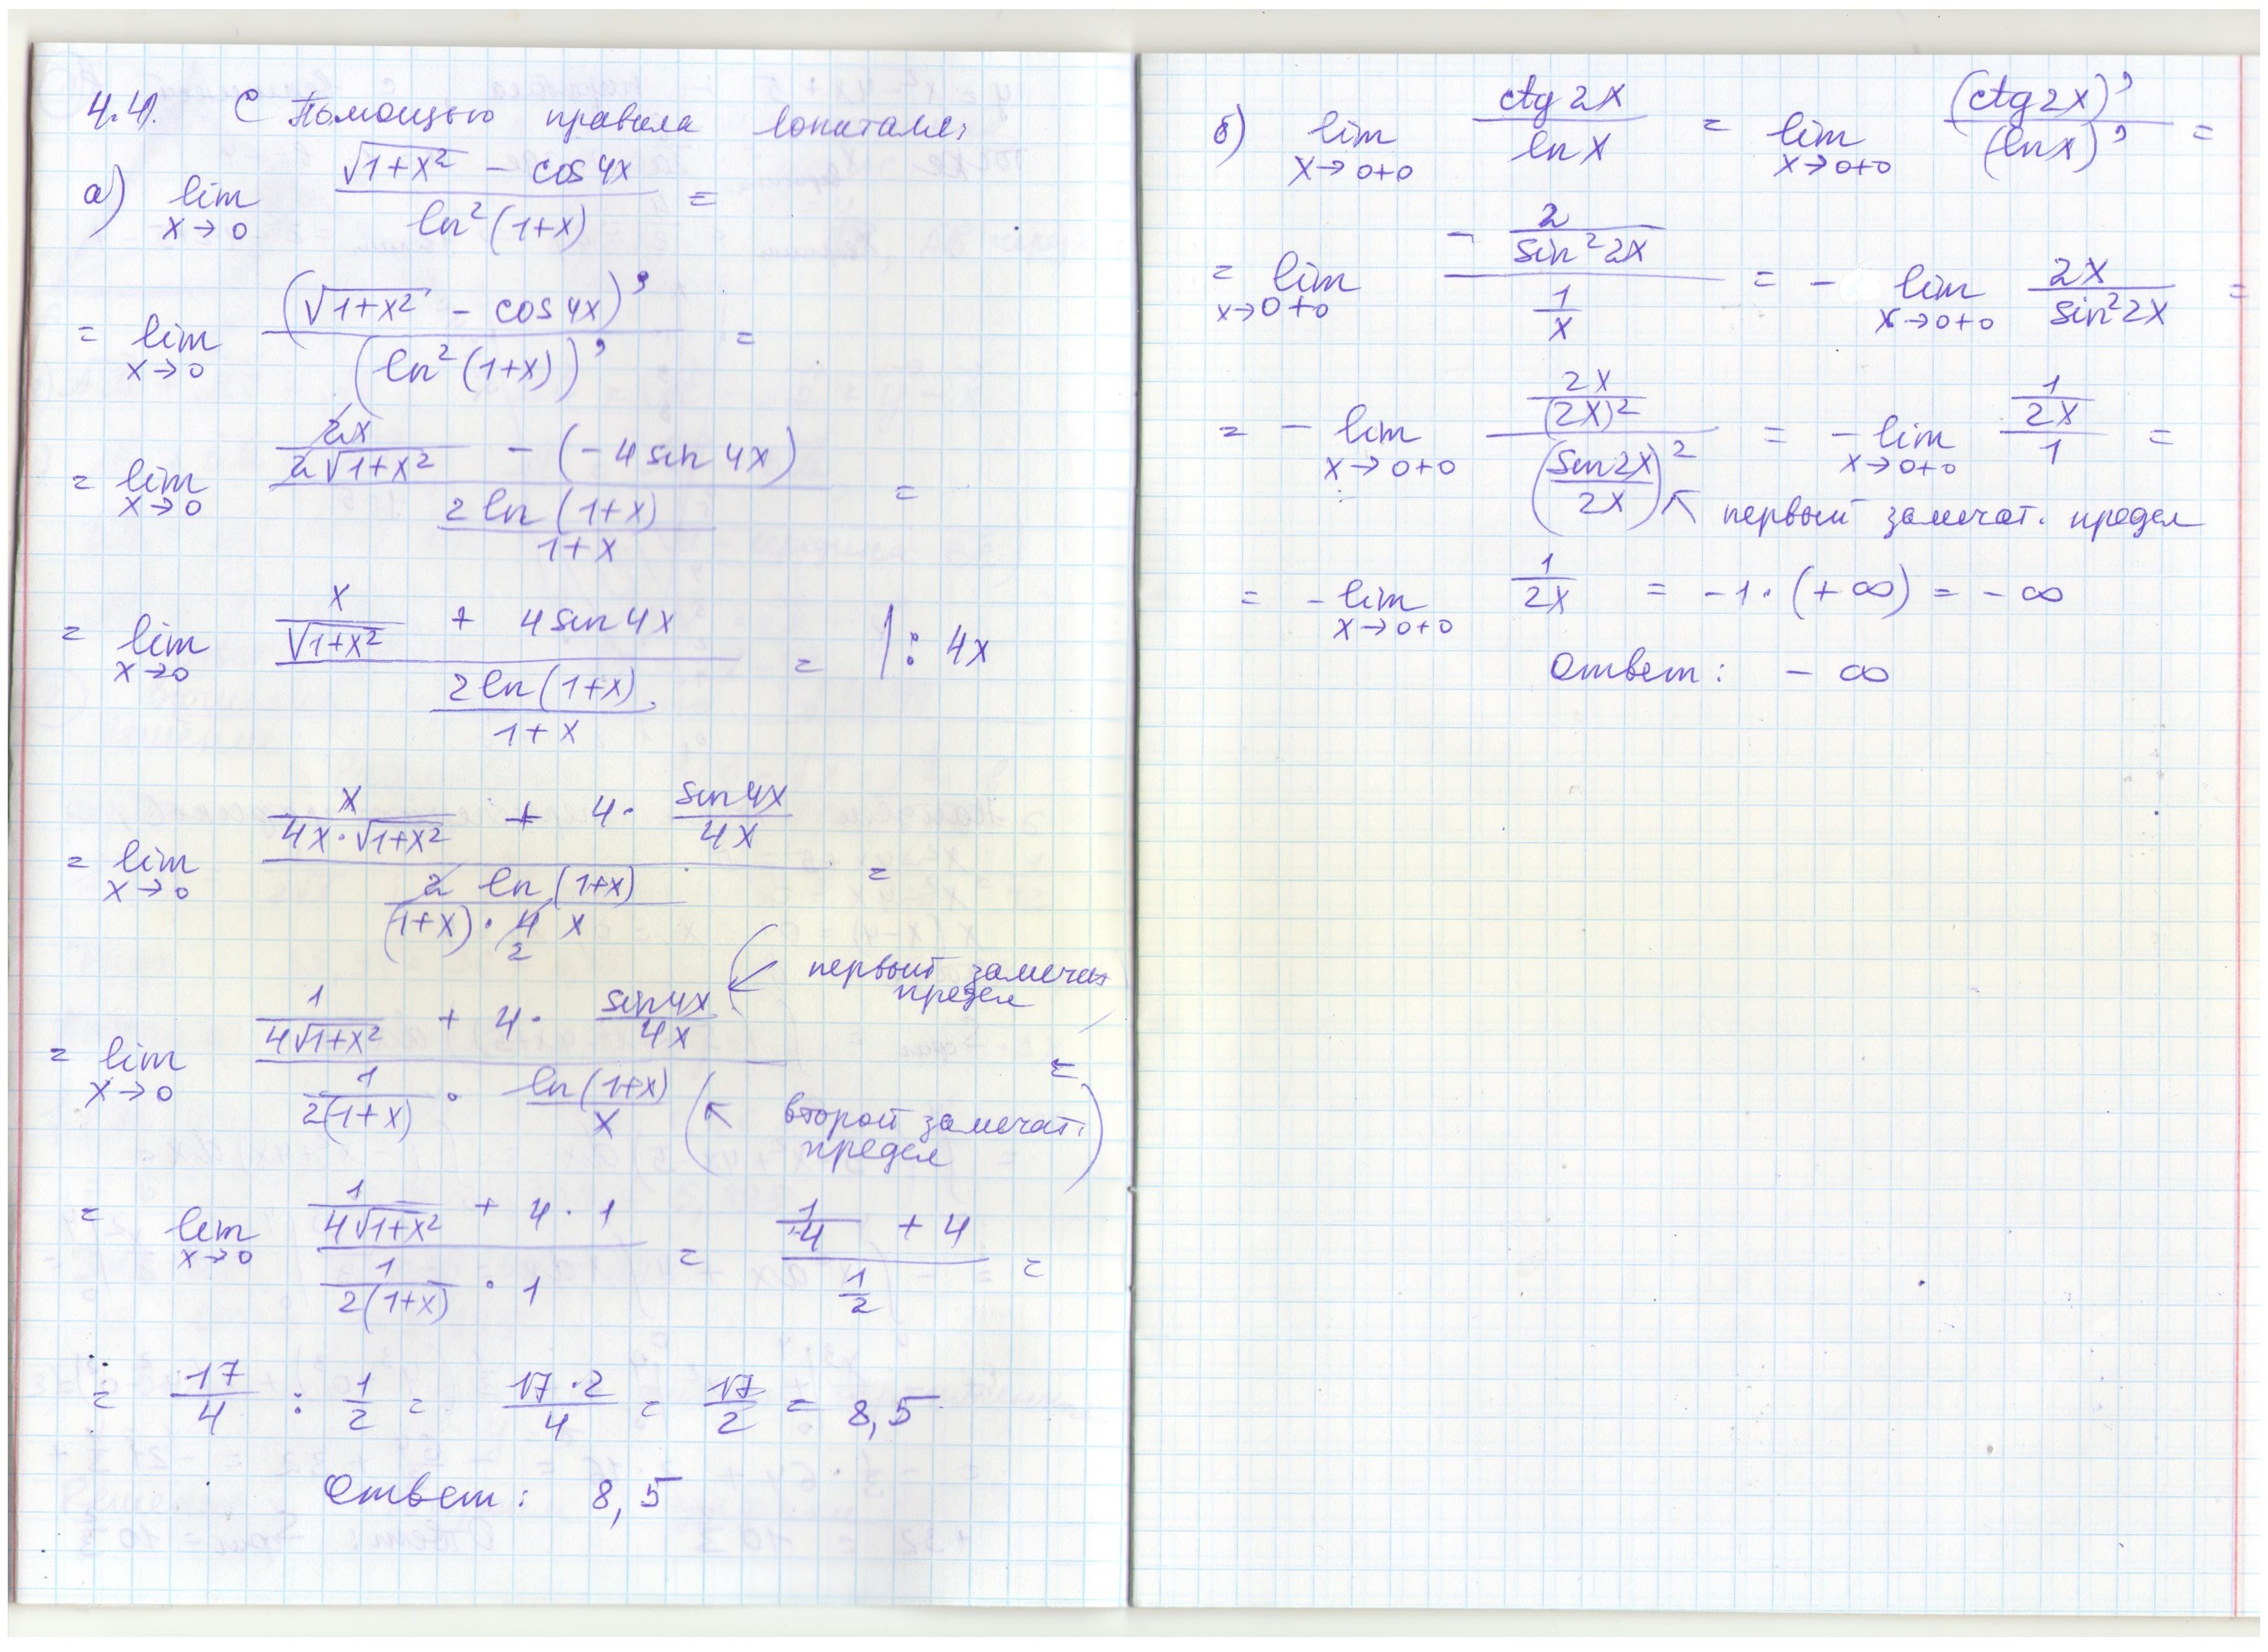 4.4. С помощью правила Лопиталя
а) lim x→0 (√(1+x²) - cos 4x) / (ln²(1+x)) =
= lim x→0 (√(1+x²) - cos 4x)' / (ln²(1+x))' =
= lim x→0 (2x/(2√(1+x²)) - (-4 sin 4x)) / (2 ln(1+x)/(1+x)) =
= lim x→0 (x/√(1+x²) + 4 sin 4x) / (2 ln(1+x)/(1+x)) = | : 4x
= lim x→0 (x/(4x·√(1+x²)) + 4· sin 4x/(4x)) / (2 ln(1+x)/((1+x)·4x)) =
2
первый замечат
предел
= lim x→0 (1/(4√(1+x²)) + 4· sin 4x/(4x)) / (1/(2(1+x)) · ln(1+x)/x) =
второй замечат.
предел
= lim x→0 (1/(4√(1+x²)) + 4·1) / (1/(2(1+x)) · 1) = (1/4 + 4) / (1/2) =
= 17/4 : 1/2 = (17·2)/4 = 17/2 = 8,5
Ответ: 8,5
б) lim x→0+0 ctg 2x / ln x = lim x→0+0 (ctg 2x)' / (ln x)' =
= lim x→0+0 (- 2/sin² 2x) / (1/x) = - lim x→0+0 2x / sin² 2x =
= - lim x→0+0 (2x/(2x)²) / (sin 2x/2x)² = - lim x→0+0 (1/2x) / 1 =
первый замечат. предел
= - lim x→0+0 1/2x = -1·(+∞) = -∞
Ответ: -∞